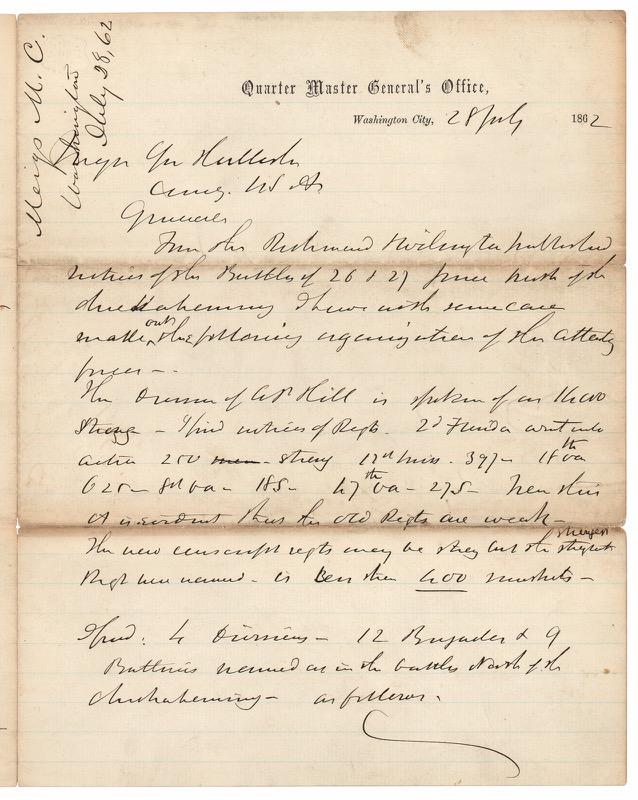 Meigs M. C.
Washington
July 28, 62
Quarter Master General's Office,
Washington City, 28 July 1862
Major Gen Halleck
Comg. US A
General
From the Richmond & Wilmington published
notices of the Battles of 26 & 27 June north of the
Chickahominy I have with some care
made out the following organization of the attacking
forces —
The Division of A P Hill is spoken of as 14,000
strong — I find notices of Regts. 2d Florida went into
action 250 men strong 12th Miss. 397 — 18th Va
 — 8th Va — 185 — 47th Va — 275 — from this
it is evident that the old Regts are weak —
The new conscript regts may be strong but the strongest
Regt here named — is less than 400 muskets —
I find: 4 Divisions — 12 Brigades & 9
Batteries named as in the battles North of the
Chickahominy — as follows.